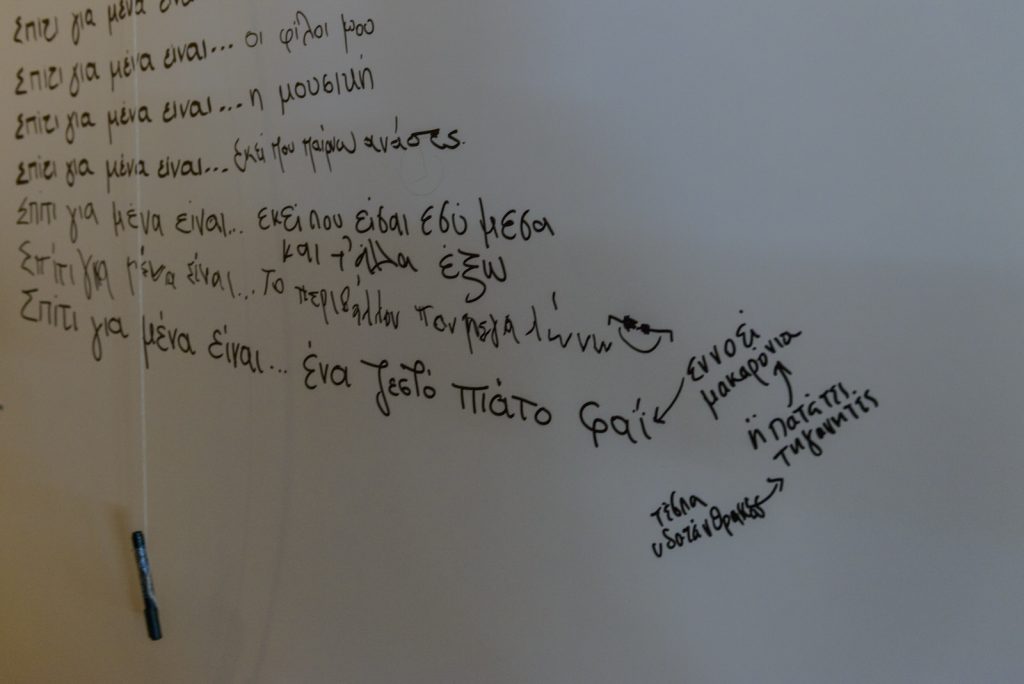 Σπίτι για μένα είναι
Σπίτι για μένα είναι... οι φίλοι μου
Σπίτι για μένα είναι... η μουσική
Σπίτι για μένα είναι... εκεί που παίρνω ανάσες.
Σπίτι για μένα είναι... εκεί που είσαι εσύ μέσα
και τ' άλλα έξω
Σπίτι για μένα είναι... το περιβάλλον που μεγαλώνω
Σπίτι για μένα είναι... ένα ζεστό πιάτο φαΐ
εννοεί
μακαρόνια
ή πατάτες
τηγανητές
τέσπα
υδατάνθρακες